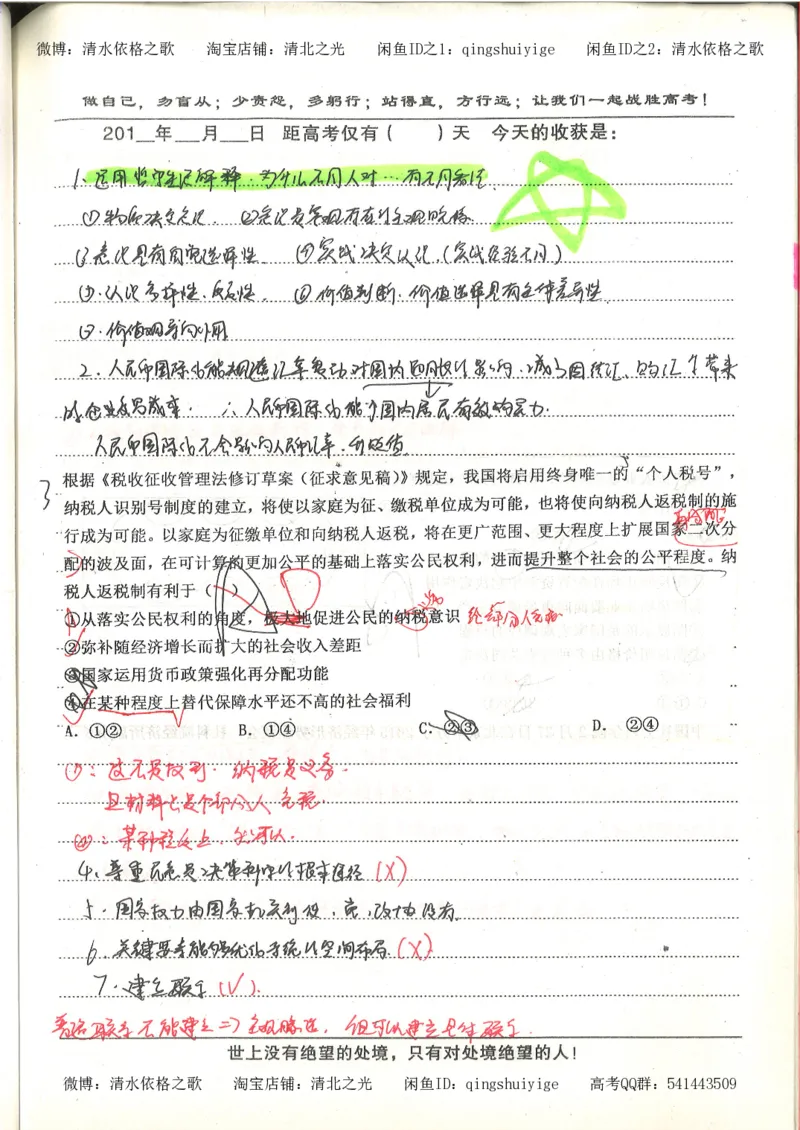 微博：清水依格之歌 淘宝店铺：清北之光 闲鱼ID之1：qingshuiyige 闲鱼ID之2：清水依格之歌
做自己，勿盲从；少责怨，多躬行；站得直，方行远；让我们一起战胜高考！
201__年___月___日 距高考仅有（ ）天 今天的收获是：
1、运用哲学生活解释，为什么不同人对…有不同看法
①物质决定意识 ②意识是客观存在的主观映像
③意识具有自觉选择性 ④实践决定认识，（实践经验不同）
⑤认识多样性、反复性 ⑥价值判断、价值选择具有主体差异性
⑦价值观导向作用
2、人民币国际化能规避汇率变动对国内的影响，减少因结汇、购汇带来
的企业交易成本。∴人民币国际化能
人民币国际化不会影响人民币汇率，升贬值
3
根据《税收征收管理法修订草案（征求意见稿）》规定，我国将启用终身唯一的“个人税号”，
纳税人识别号制度的建立，将使以家庭为征、缴税单位成为可能，也将使向纳税人返税制的施
行成为可能。以家庭为征缴单位和向纳税人返税，将在更广范围、更大程度上扩展国家一次分
再分配
配的波及面，在可计算的更加公平的基础上落实公民权利，进而提升整个社会的公平程度。纳
税人返税制有利于（ ）
①从落实公民权利的角度，极大地促进公民的纳税意识 给部分人免税
②弥补随经济增长而扩大的社会收入差距
③国家运用货币政策强化再分配功能
④在某种程度上替代保障水平还不高的社会福利
A．①② B．①④ C．②③ D．②④
①：这不是权利，纳税是义务。
且材料上是个部分人免税.
④：某种程度上，可以.
4、尊重民意是决策利民的根本途径（X）
5、国务权力由国务机关行使，党、政协没有
6、关键要素能够优化系统的空间布局.（X）
7、建立联系（√）.
普遍联系不能建立=）客观联系，但可以建立具体联系.
世上没有绝望的处境，只有对处境绝望的人！
微博：清水依格之歌 淘宝店铺：清北之光 闲鱼ID：qingshuiyige 高考QQ群：541443509